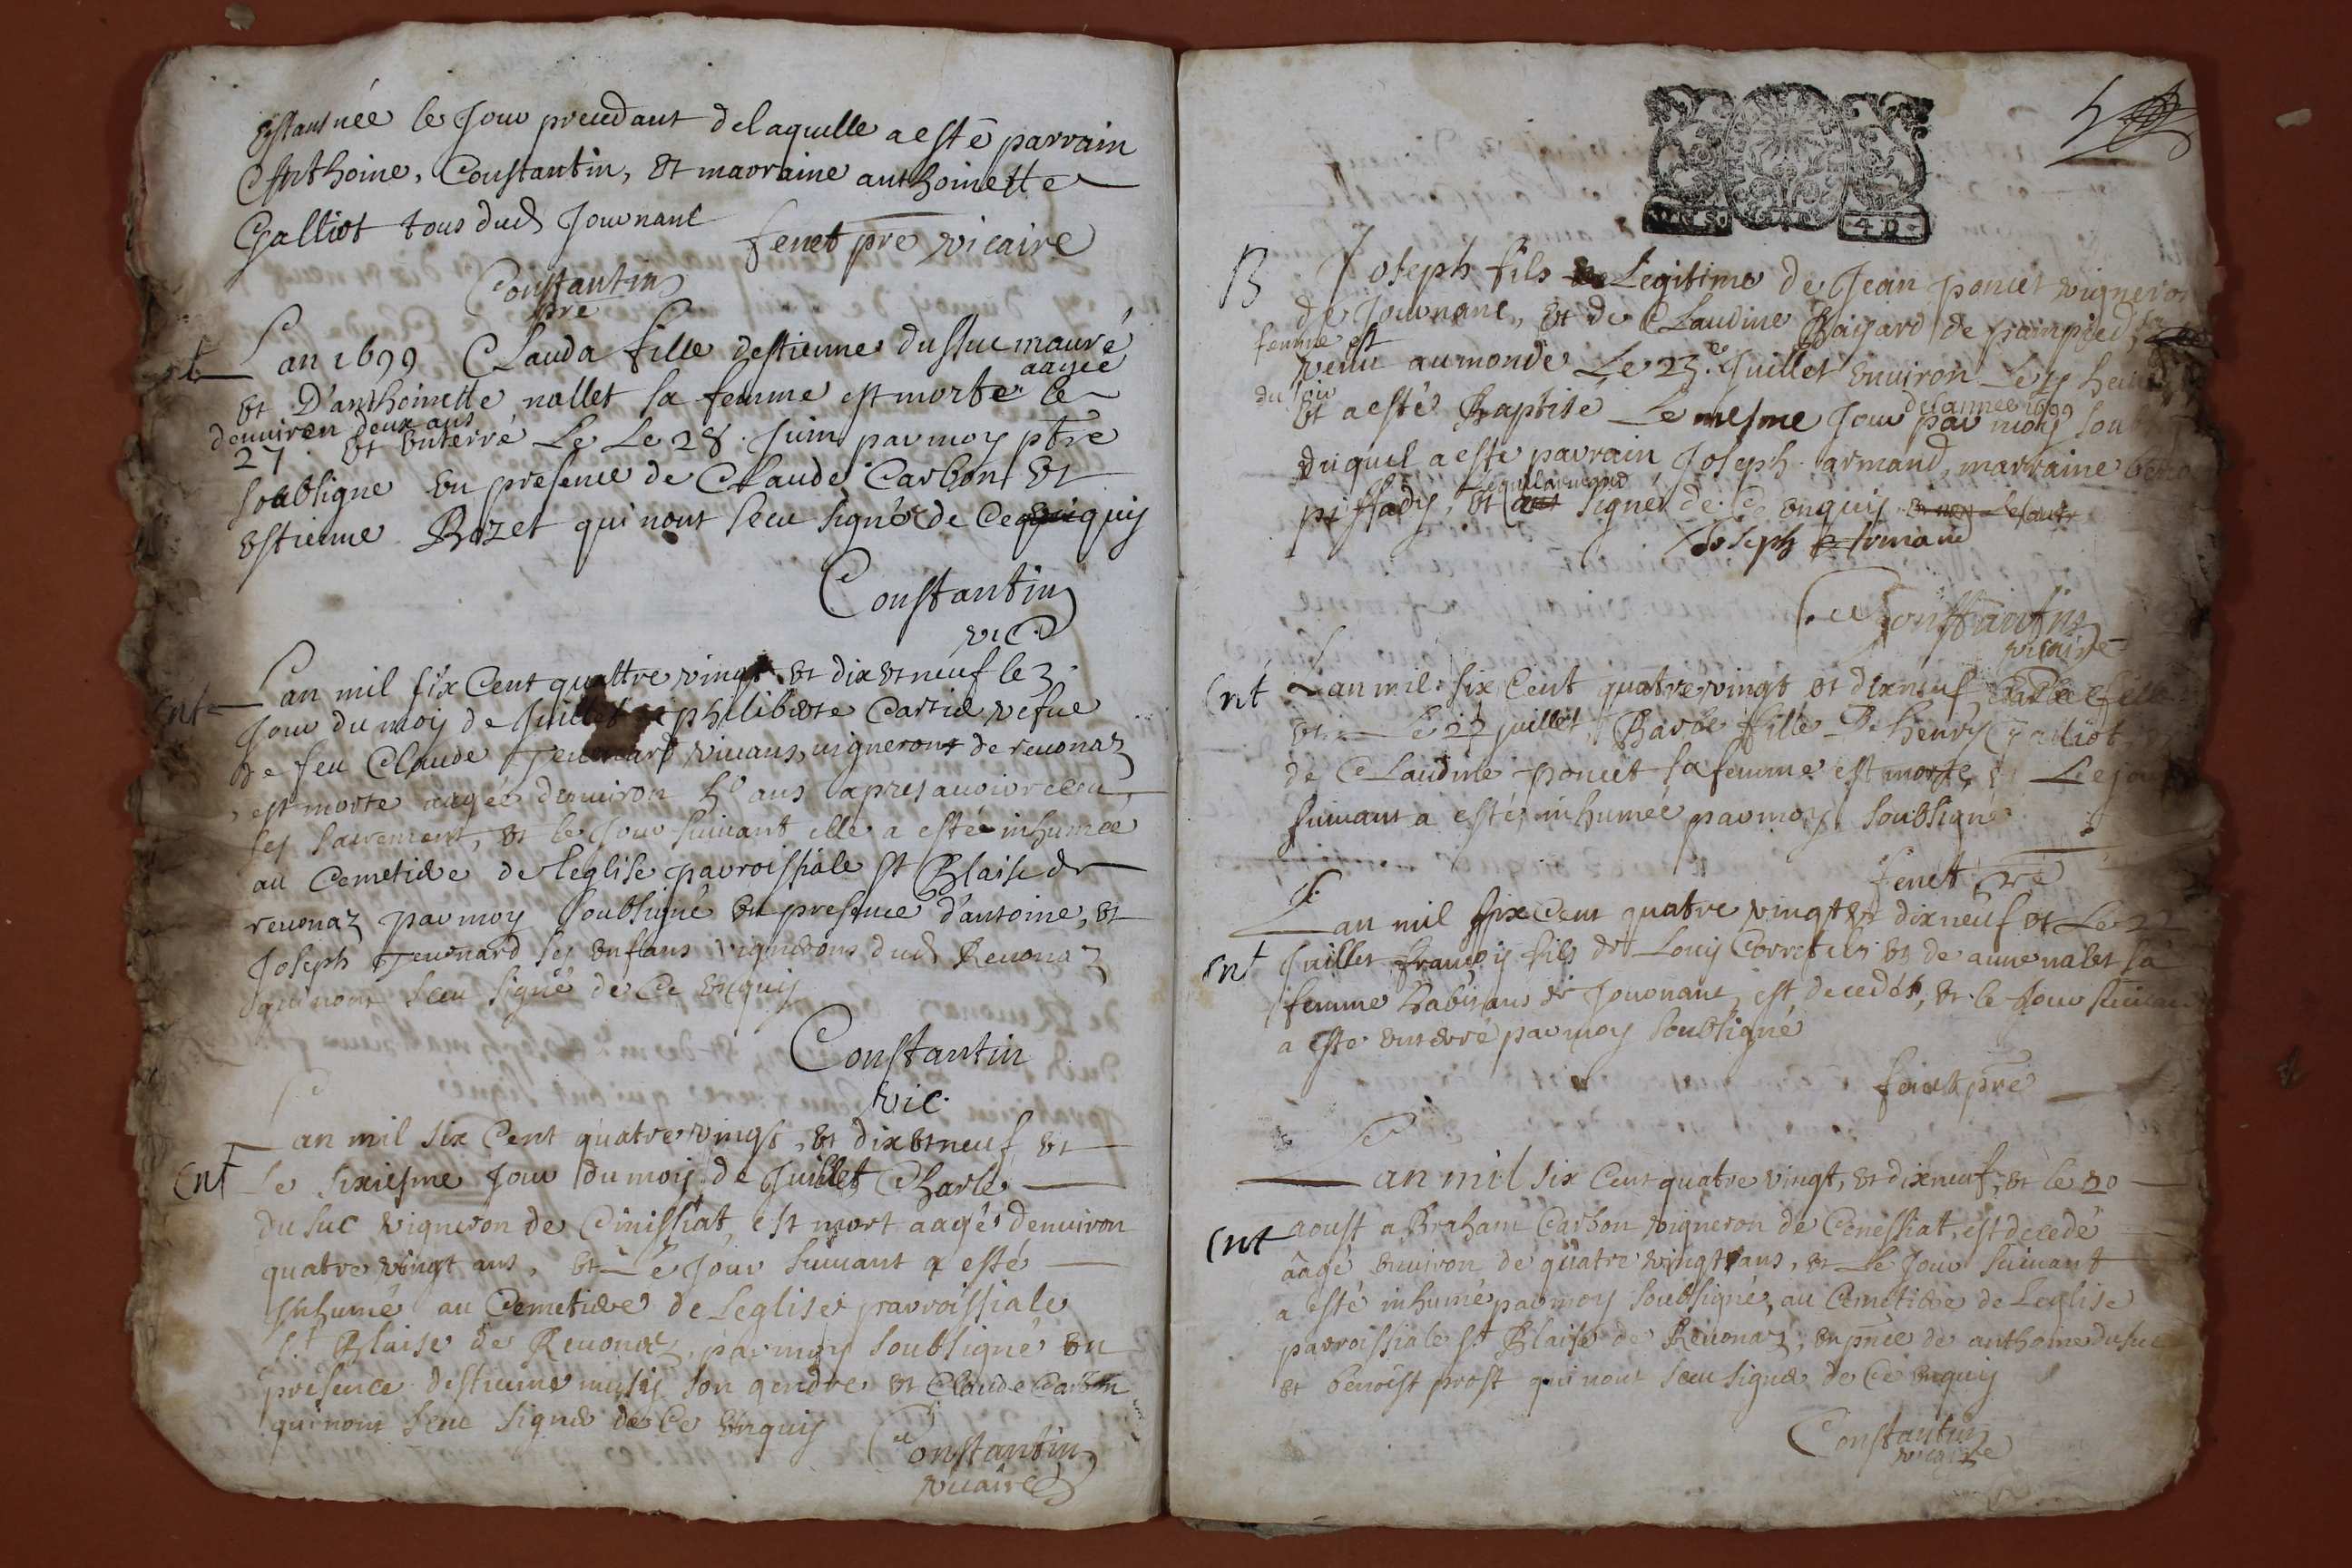 Estant née le Jour precedant delaquelle a esté parrain
Anthoine, Constantin, et marraine anthoinette
Galliot tous dud Journant
fenet pre vicaire
Constantin
pre
L'an 1699 Clauda fille destienne dussuc mauré
aagée
et D'anthoinette nallet sa femme est morte le
denuiron deux ans
27. et enterré Le Le 28. Juin par moy ptre
soubsigne en presence de Claude Carbon et
estienne Bozet qui nont sceu signer de ce enquis
Constantin
vic
ent L'an mil six Cent quattre vingt et dix et neuf le 3.
Jour du mois de Juillet philiberte vefue
de feu Claude Teuenard viuans, vigneront de reuonaz
est morte aagée denuiron 50 ans apres auoir receu
ses sacrement, et le Jour suiuant elle a esté inhumée
au Cemetiere de leglise parroissiale st Blaise de
reuonaz par moy soubsigné en presence d'antoine, et
Joseph Teuenard ses enfans vignerons dud Reuonaz
qui nont sceu signé de Ce enquis
Constantin
vic.
L'an mil six Cent quatre vingt, et dix et neuf et
ent Le sixiesme Jour du mois de Juillet Charle
du suc vigneron de Cinissiat, est mort aagé denuiron
quatre vingt ans, et Le Jour suiuant a esté
Inhumé au Cemetiere de Leglise parroissiale
St Blaise de Reuonaz, par moy soubsigné en
presence destienne son gendre et Claude Carbon
qui nont sceu signer de Ce enquis
Constantin
vicaire
B Joseph fils Legitime de Jean poncet vigneron
de Journant, et de Claudine Bagard de
femme est
venu au monde Le 23.e Juillet enuiron Les heure
du soir
de lannee 1699
et a esté Baptisé Le mesme Jour par moy
duquel a esté parrain Joseph armand, marraine
lequel armand
piffady, et signer de Ce enquis
Joseph Armand
Constantin
vicaire
ent L'an mil six Cent quatre vingt et dixneuf
et Le juillet, Barbe fille De henry Galliot
de Claudine poncet sa femme est morte, et Le jour
suiuant a esté inhumée par moy soubsigné
fenet pre
L'an mil six Cent quatre vingt et dixneuf et Le
ent Juillet françois fils de Louis et de anne nalet sa
femme habitans de Jouonant est decedé, et le Jour suiuant
a esté enterré par moy soubsigné
fenet pre
L'an mil six Cent quatre vingt, et dixneuf, et le 20
ent aoust aBraham Carbon vigneron de Cenessiat, est decedé
âagé enuiron de quatre vingt ans, et Le Jour suiuant
a esté inhumé par moy soubsigné, au Cemetiere de Leglise
parroissiale st Blaise de Reuonaz, en pnce de anthoine dusuc
et benoist prost qui nont sceu signer de Ce enquis
Constantin
vicaire